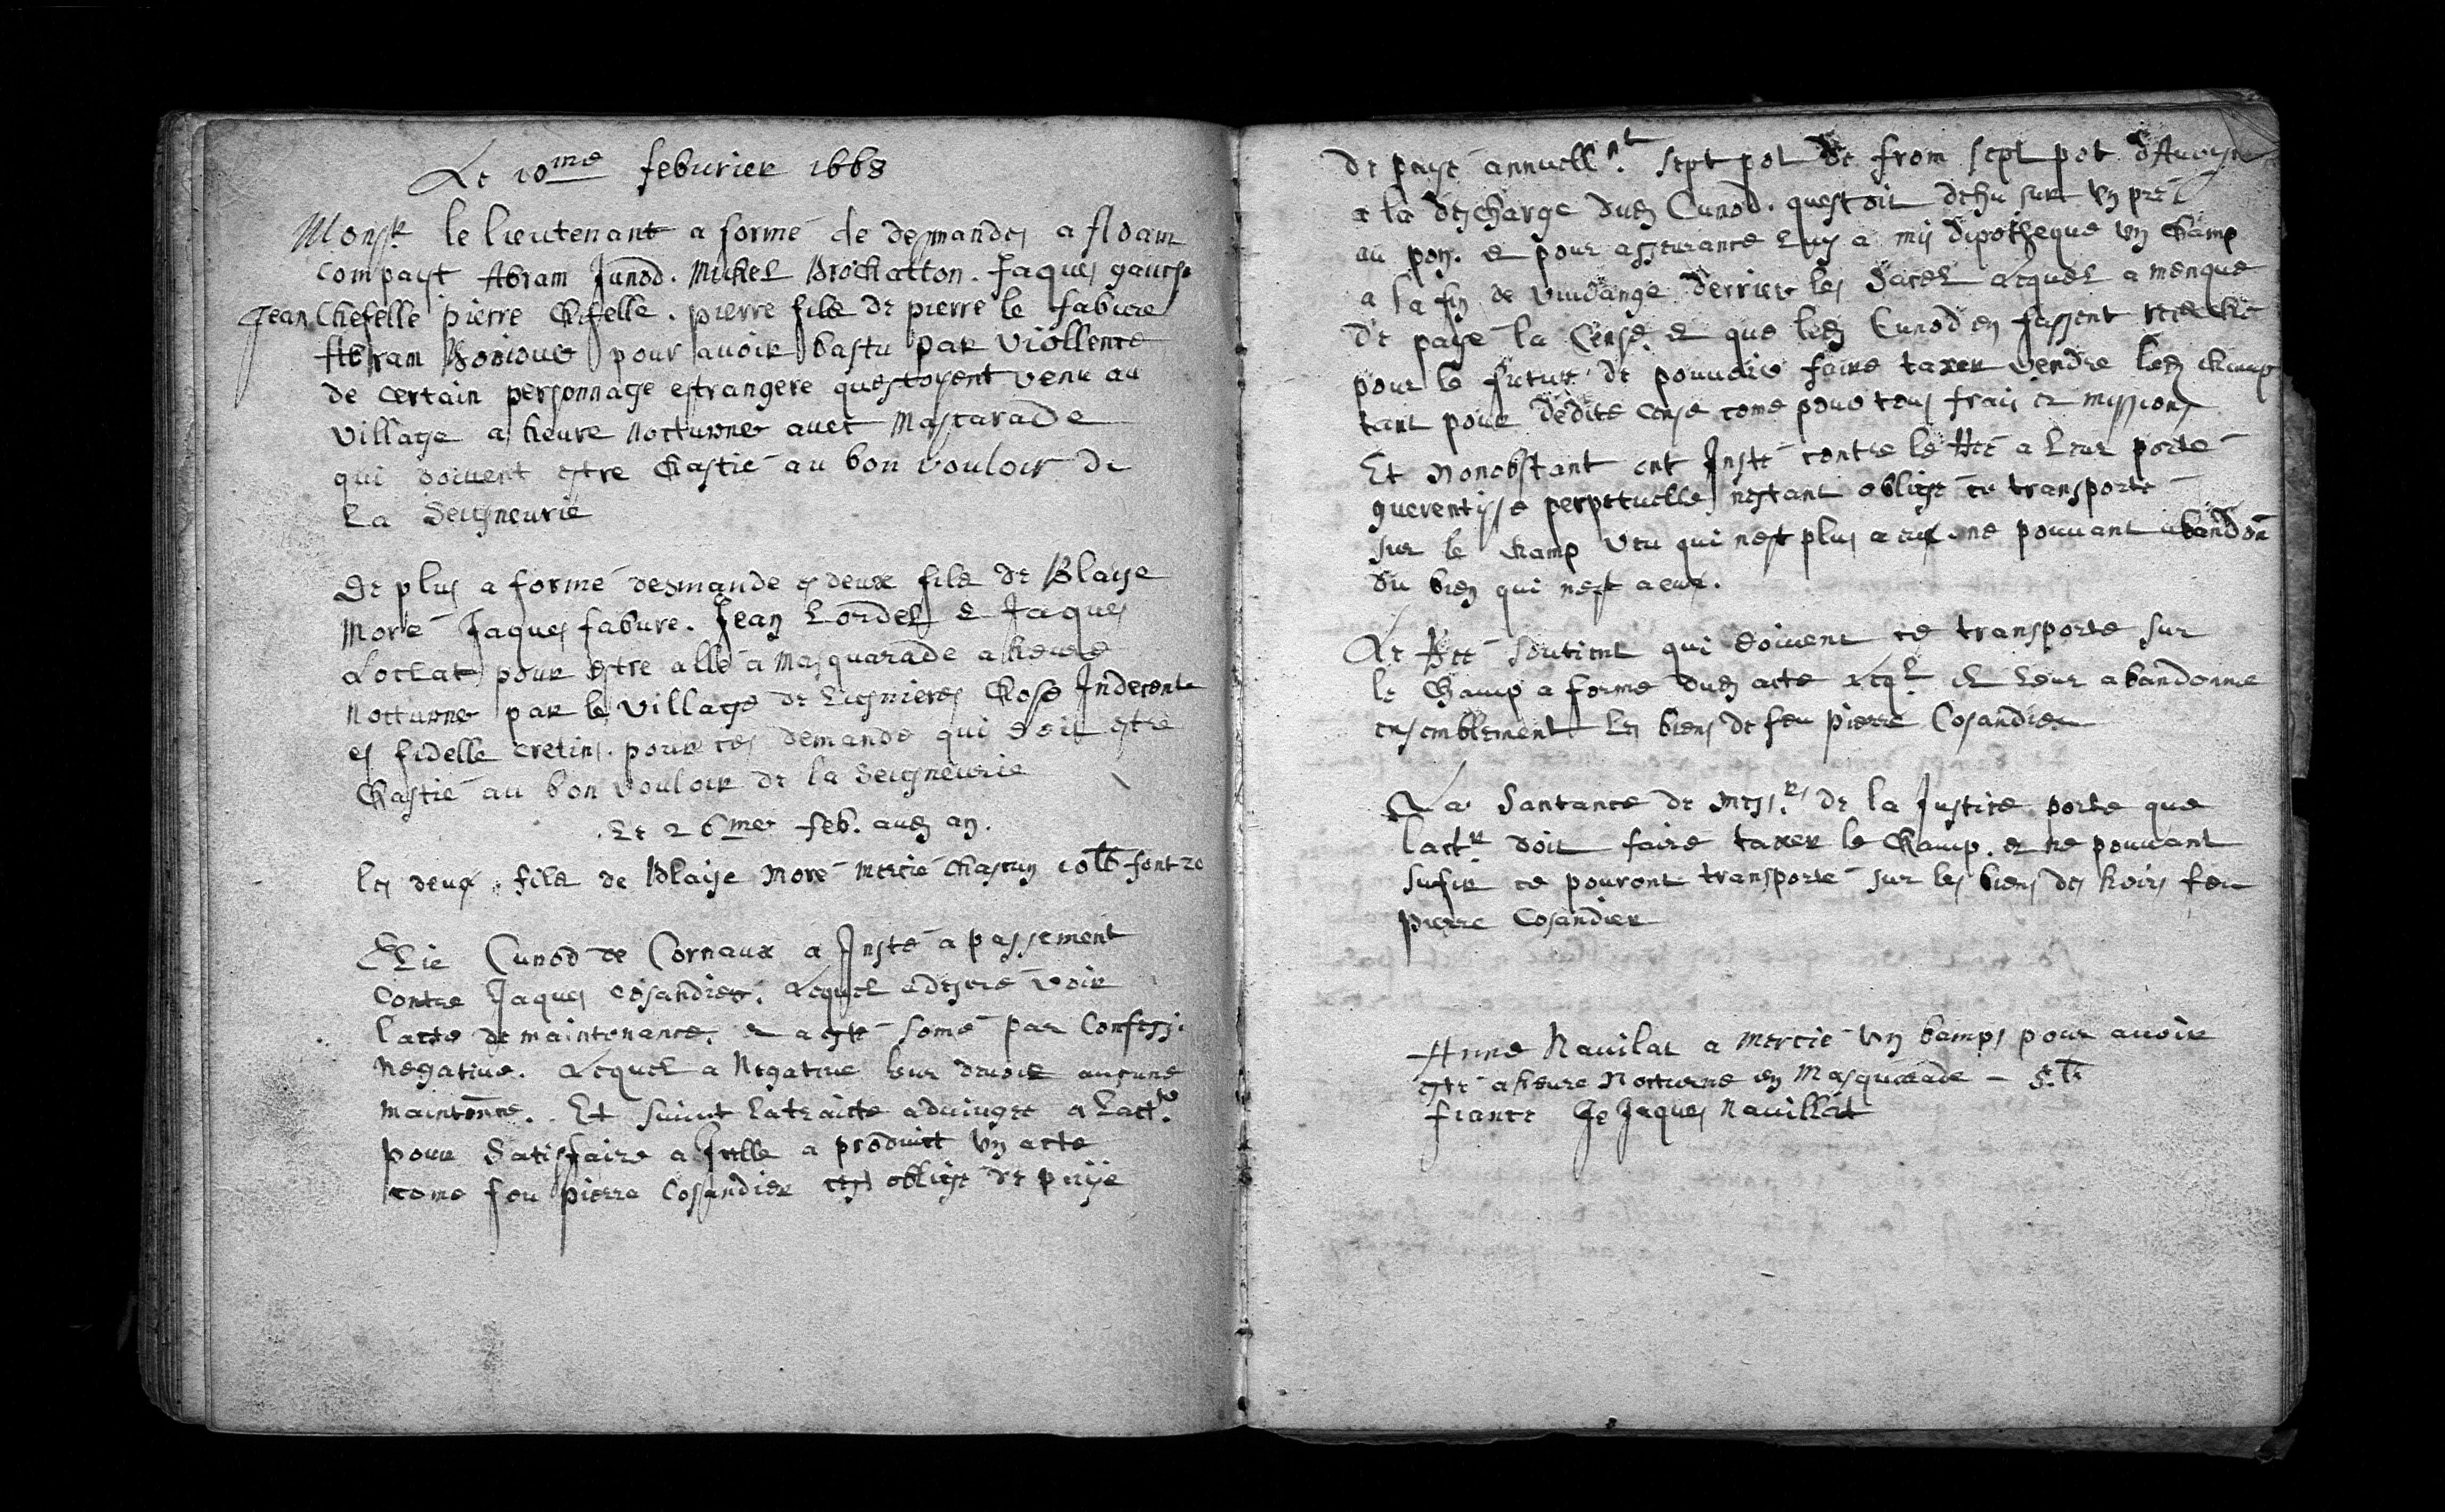 Le 10me feburier 1668
Monsr le lieutenant a formé de desmandes a
Compayt Abram Junod. Michel Brochatton. Jaques gauche
Jean Chefelle pierre Chifelle. pierre filz de pierre le fabure
Abram pour auoir bastu par viollence
de certain personnage estrangere questoyent venu au
village a heure nocturne auec Mascarade
qui doiuent estre Chastié au bon vouloir de
La Seigneurie
De plus a formé desmande es deux filz de Blayse
Moré Jaques fabure. Jean Lordel e Jaques
Loclat pour estre allé a Masquarade a heure
Nocturne par le village de Lignieres Chose Indecente
es fidelle cretins. pour ces demande qui doit estre
Chastié au bon vouloir de la Seigneurie
Le 26me feb. aud an.
les deux filz de Blaise Moré mercié chascun 10 lb font 20
Elie Cunod de Cornaux a Insté a passement
Contre Jaques Cosandier. Lequel a desiré voir
lacte de maintenance. e a esté somé par Confess.
Negatiue. Lequel a Negatiue leur deuoir aucune
maintenne. Et suiut latraicte aduingee a Lactr
pour Satisfaire a Icelle a produict vn acte
come feu pierre Cosandier cest obligé de paije
de payé annuellnt. sept pot de from sept pot dAuoyne
a la descharge dud Cunod. questoit dehu sur vn pré
au pon. e pour asseurance luy a mis dipotheque vn Champ
a la fin de vindange derrier les lequel a menque
de paye la Cense. e que led Cunod en fussent
pour le futur de pouuoir faire taxer vendre led champ
tant pour dedite cense come pour tous frais e missions
Et nonobstant ont Insté contre le Rée a leur porté
guerentisse perpetuelle nestant obligé ce transporté
sur le champ veu qui nest plus a eux ne pouuant abandon
du bien qui nest a eux.
Le Rée soutient qui doiuent ce transporté sur
le Champ a forme dud acte e leur abandonne
ensemblement les biens de feu pierre Cosandier
La Santance de Messrs de la Justice porte que
lactr doit faire taxer le Champ. e ne pouuant
sufir ce pouront transporté sur les biens des hoirs feu
pierre Cosandier
Anne Nauilat a mercié vn bamps pour auoir
esté a heure Nocturne en Masquarade - 5 lb
fiance Je Jaques Nauillat